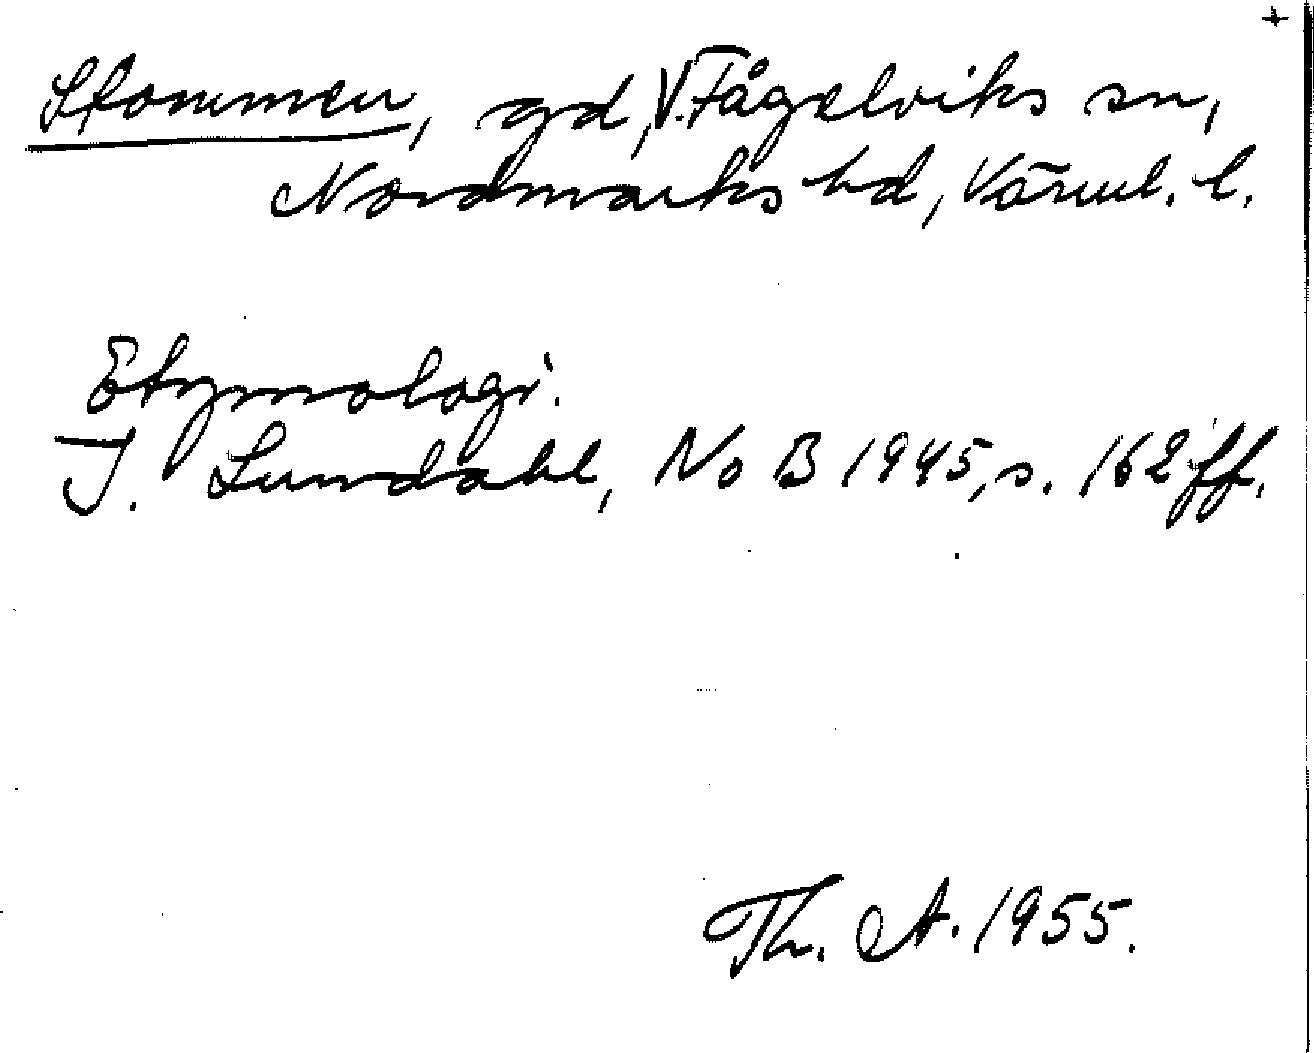 +
Stommen, gd, V. Fågelviks sn,
Nordmarks hd, Värml. l.
Etymologi.
I. Lundahl, NoB 1945, s. 162 ff.
Th. A. 1955.